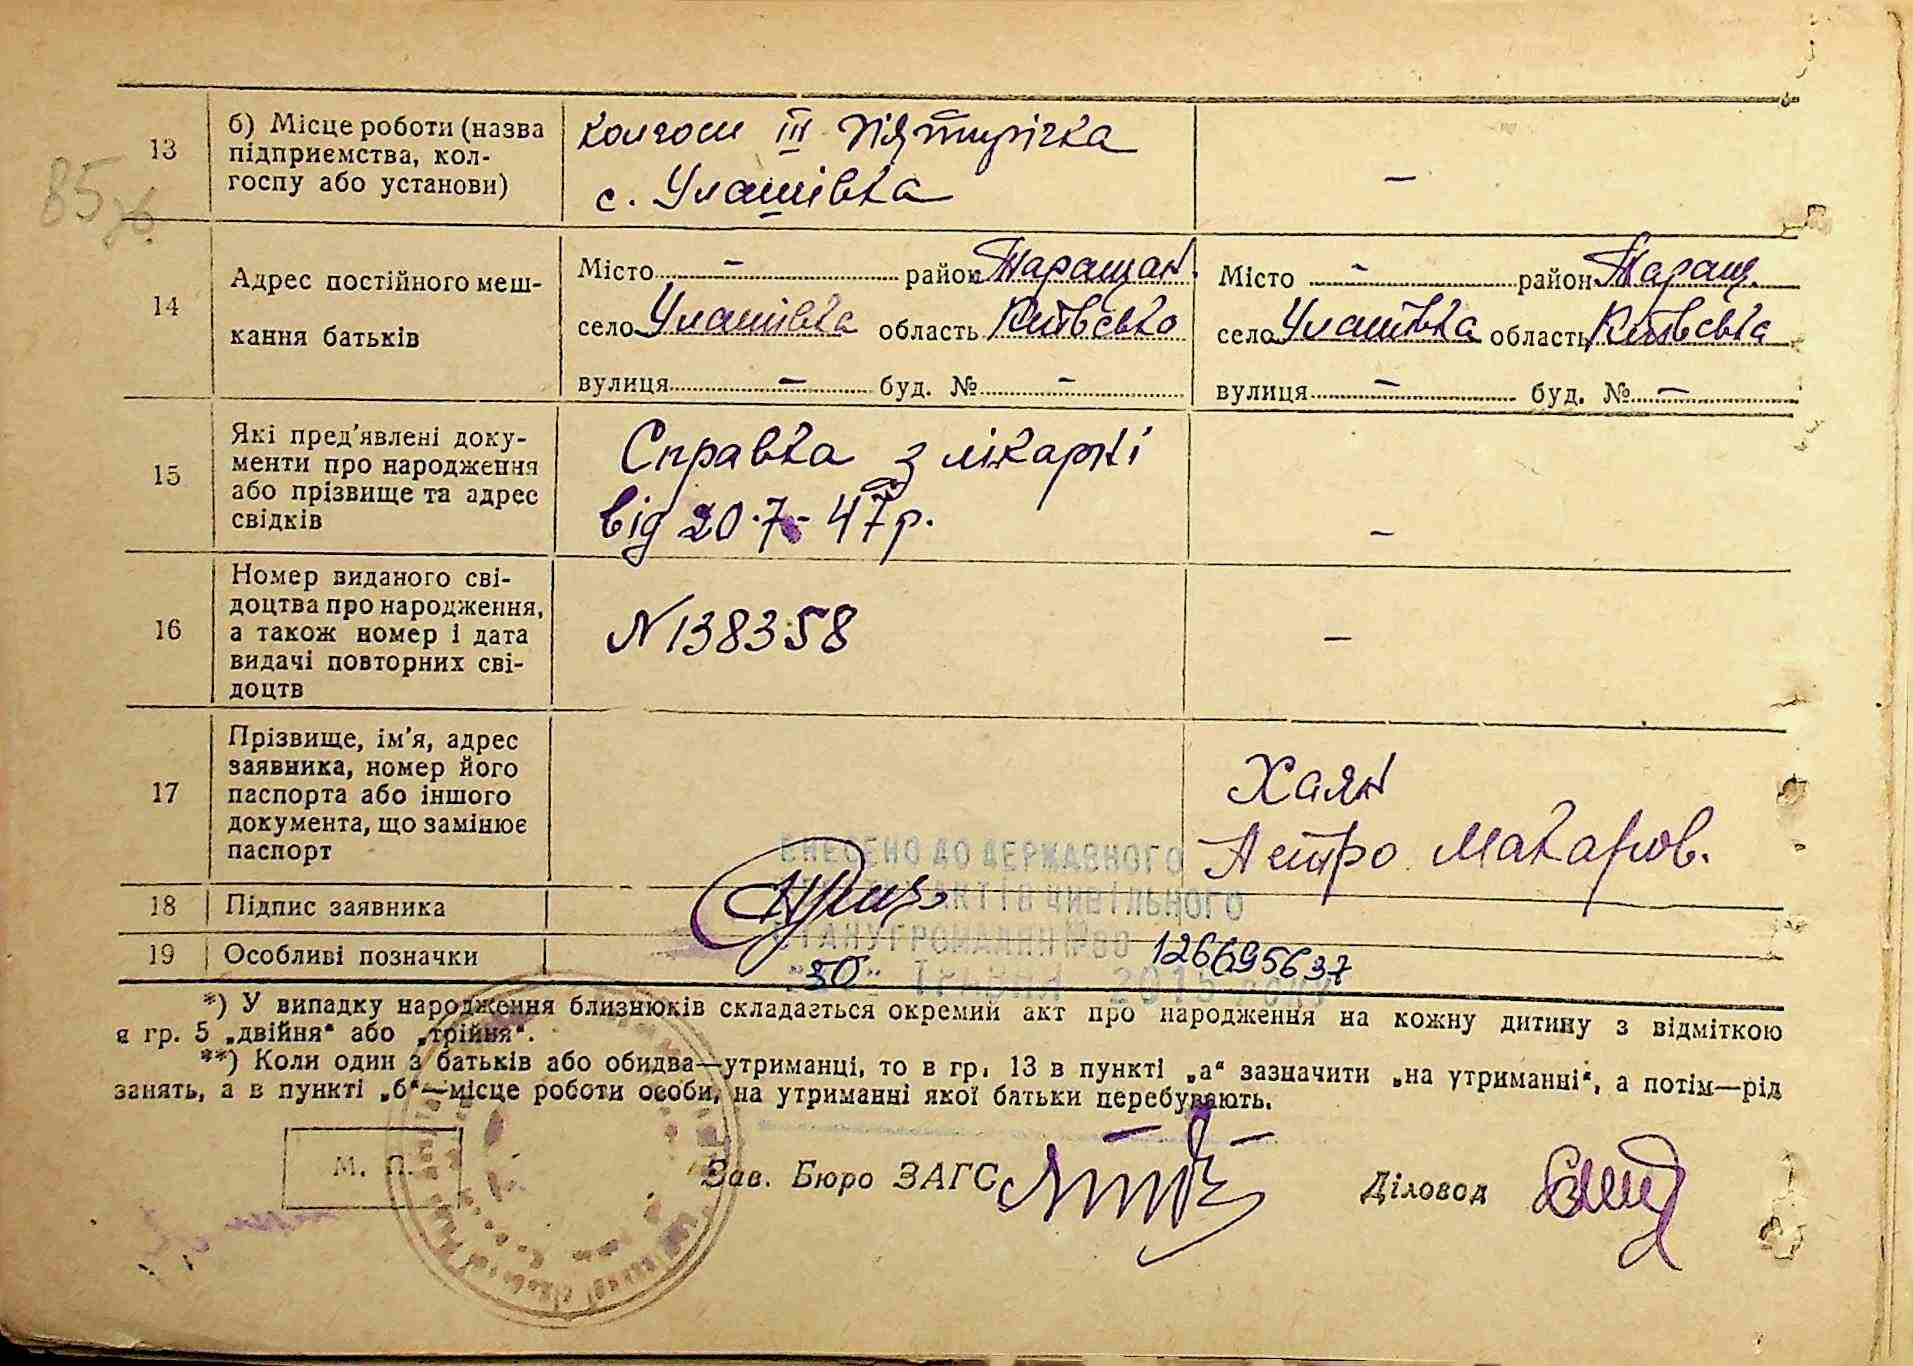 13
б) Місце роботи (назва
підприємства, кол-
госпу або установи)
колгосп III Пятирічка
с. Улашівка
—
85
14
Адрес постійного меш-
кання батьків
Місто — район Таращан.
село Улашівка область Київсько
вулиця — буд. № —
Місто — район Таращ.
село Улашівка область Київська
вулиця — буд. № —
15
Які пред'явлені доку-
менти про народження
або прізвище та адрес
свідків
Справка з лікарні
від 20.7-47 р.
—
16
Номер виданого сві-
доцтва про народження,
а також номер і дата
видачі повторних сві-
доцтв
N 138358
—
17
Прізвище, ім'я, адрес
заявника, номер його
паспорта або іншого
документа, що замінює
паспорт
Хаян
Петро Макаров.
18
Підпис заявника
19
Особливі позначки
ВНЕСЕНО ДО ДЕРЖАВНОГО
РЕЄСТРУ АКТІВ ЦИВІЛЬНОГО
СТАНУ ГРОМАДЯН № 00 126695637
"30" ТРАВНЯ 2015 РОКУ
*) У випадку народження близнюків складається окремий акт про народження на кожну дитину з відміткою
в гр. 5 „двійня“ або „трійня“.
**) Коли один з батьків або обидва—утриманці, то в гр. 13 в пункті „а“ зазначити „на утриманні“, а потім—рід
занять, а в пункті „б“—місце роботи особи, на утриманні якої батьки перебувають.
М. П.
Зав. Бюро ЗАГС
Діловод